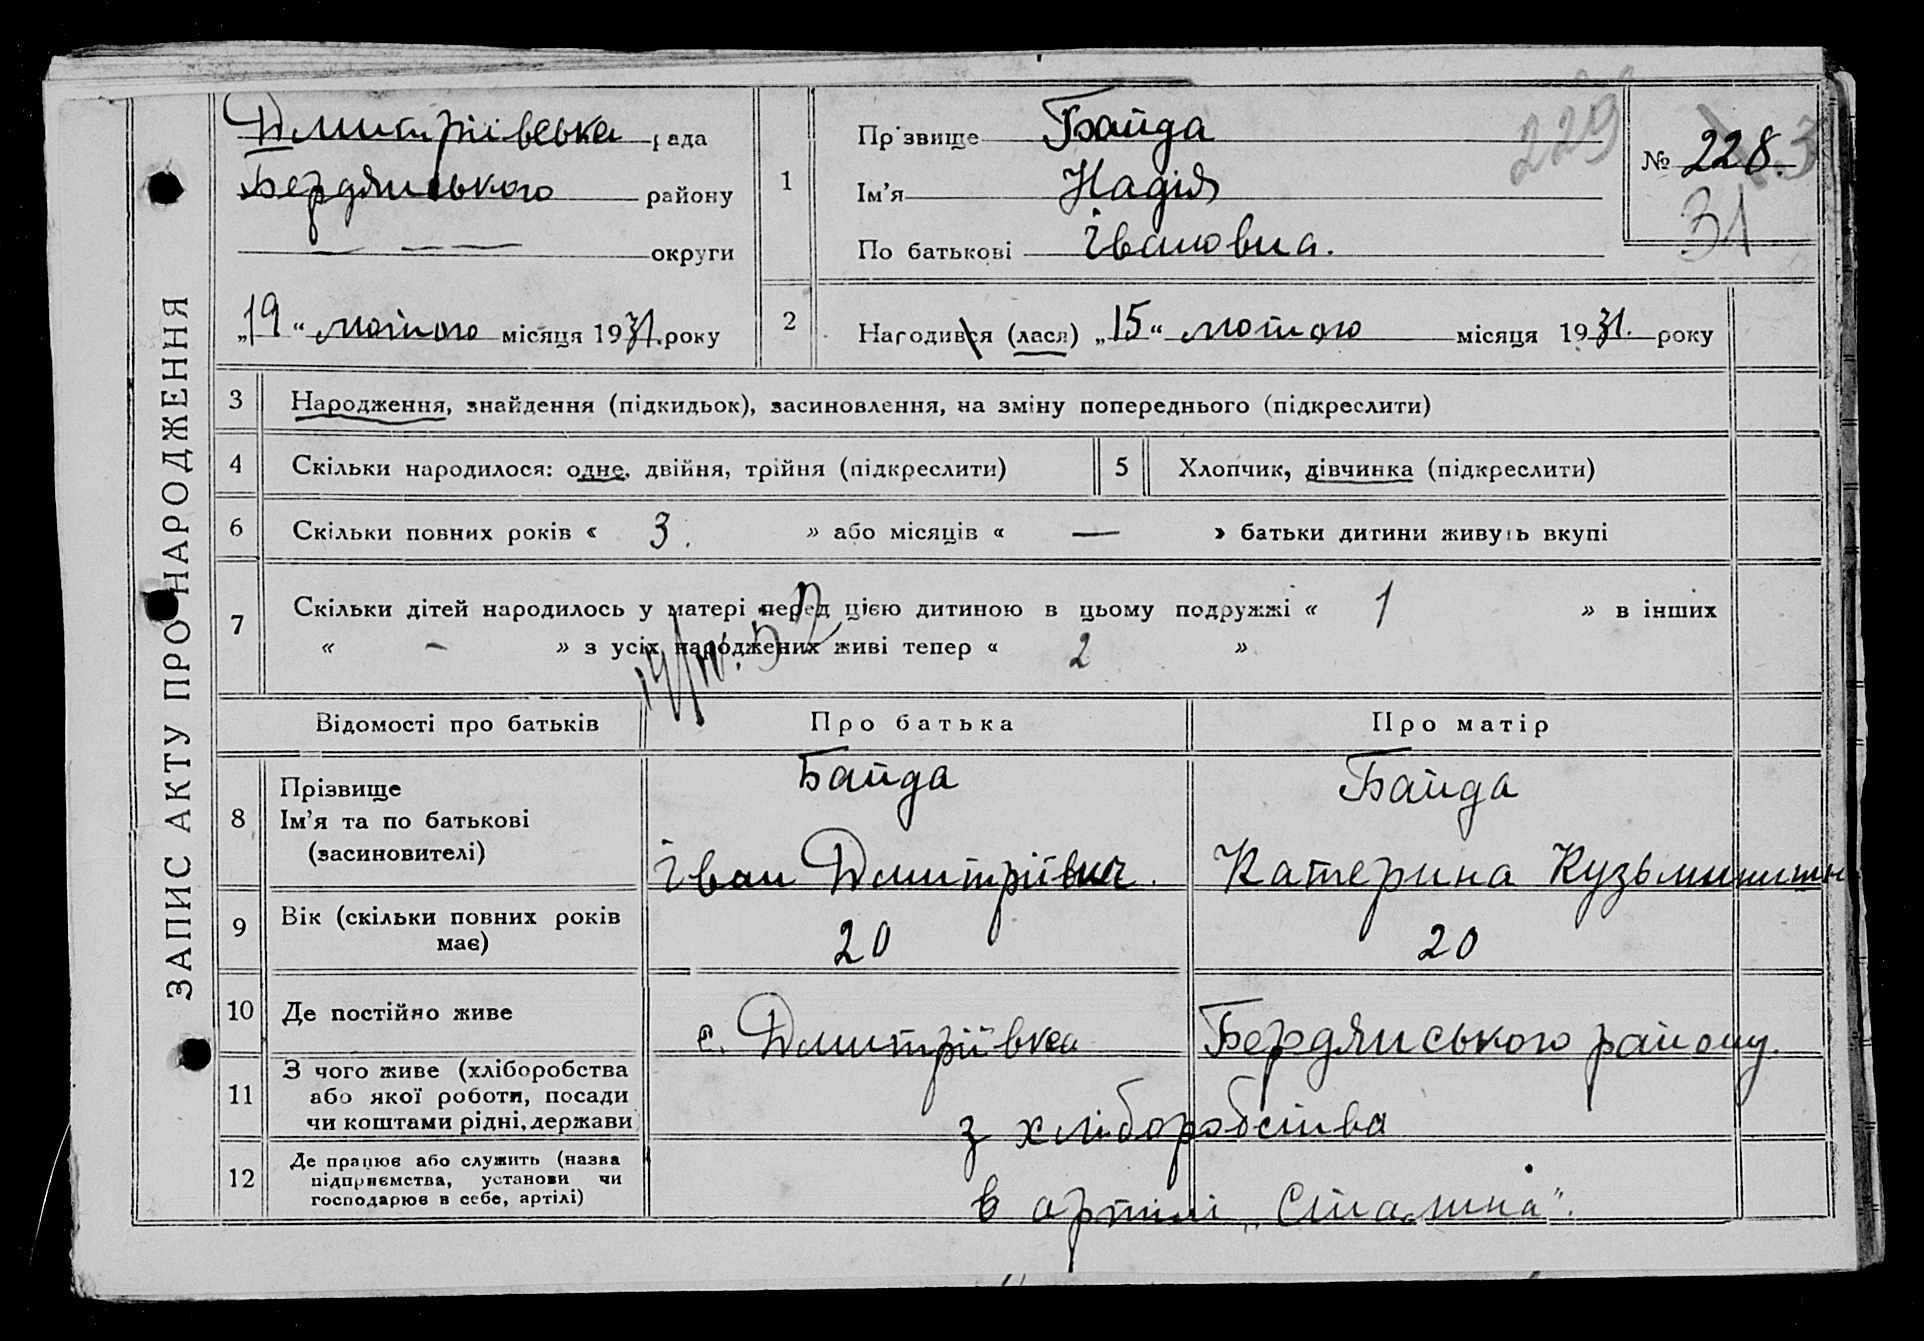 ЗАПИС АКТУ ПРО НАРОДЖЕННЯ
Дмитріївська рада
Бердянського району
округи
„19“ лютого місяця 1931. року
1
Прізвище Байда
Ім'я Надія
По батькові Івановна.
229
№ 228.
31
2
Народився (лася) „15“ лютого місяця 1931. року
3 Народження, знайдення (підкидьок), засиновлення, на зміну попереднього (підкреслити)
4 Скільки народилося: одне, двійня, трійня (підкреслити)
5 Хлопчик, дівчинка (підкреслити)
6 Скільки повних років « 3. » або місяців « — » батьки дитини живуть вкупі
7 Скільки дітей народилось у матері перед цією дитиною в цьому подружжі « 1 » в інших
« - » з усіх народжених живі тепер « 2 »
Відомості про батьків Про батька Про матір
8 Прізвище
Ім'я та по батькові
(засиновителі)
Байда
Іван Дмитріївич.
Байда
Катерина
9 Вік (скільки повних років
має)
20 20
10 Де постійно живе с. Дмитріївка Бердянського району.
11 З чого живе (хліборобства
або якої роботи, посади
чи коштами рідні, держави
з хліборобства
12 Де працює або служить (назва
підприємства, установи чи
господарює в себе, артілі)
в артілі „Сталіна".